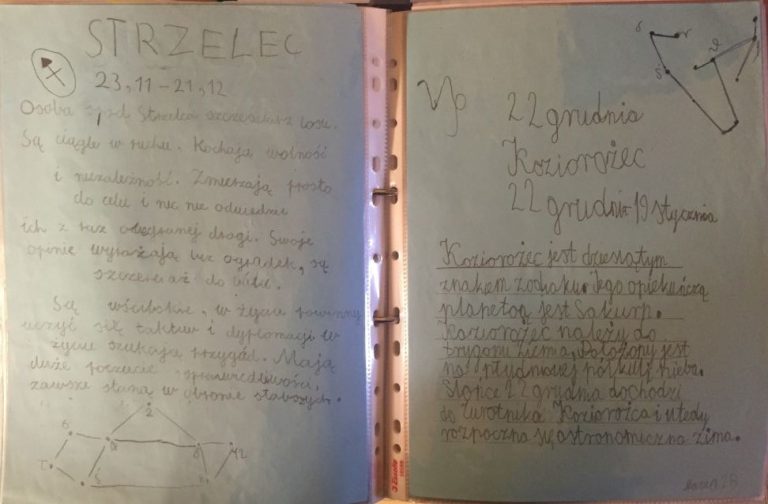 STRZELEC
23,11-21,12
Osoba spod Strzelca szczęściarz losu.
Są ciągle w ruchu. Kochają wolność
i niezależność. Zmierzają prosto
do celu i nic nie odwiedzie
ich z raz obranej drogi. Swoje
opinie wyrażają bez ogródek, są
szczerzi aż do bólu.
Są wścibskie, w życiu powinny
uczyć się taktu i dyplomacji w
życiu szukają przygód. Mają
duże poczucie sprawiedliwości,
zawsze staną w obronie słabszych.
♑ 22 grudnia
Koziorożec
22 grudni-19 stycznia
Koziorożec jest dziesiątym
znakiem zodiaku. Jego opiekuńczą
planetą jest Saturn.
Koziorożec należy do
trygonu ziemia. Położony jest
na południowej półkuli nieba.
Słońce 22 grudnia dochodzi
do zwrotnika Koziorożca i wtedy
rozpoczna się astronomiczna zima.